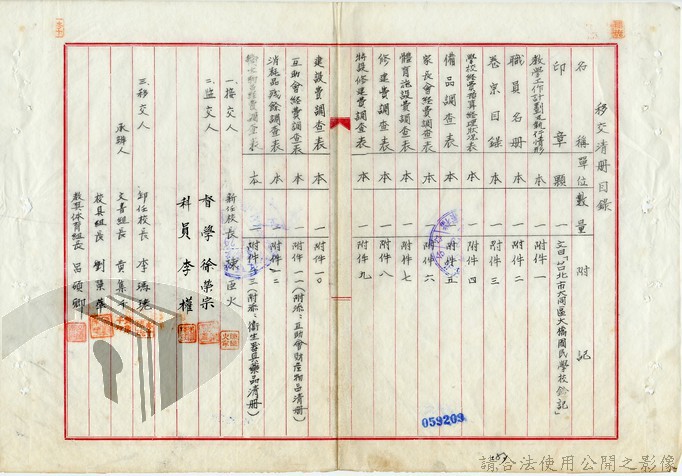 移交清冊目錄
名稱 單位 數量 附記
印章 顆 一 文曰「台北市大同區大橋國民學校鈐記」
教學工作計劃及執行情形 本 一 附件一
職員名冊 本 一 附件二
卷宗目錄 本 一 附件三
學校經費預算經理狀況表 本 一 附件四
備品調查表 本 一 附件五
家長會經費調查表 本 一 附件六
體育施設費調查表 本 一 附件七
修建費調查表 本 一 附件八
特設修建費調查表 本 一 附件九
建設費調查表 本 一 附件一〇
互助會經費調查表 本 一 附件一一(附添:互助會財產物品清冊)
消耗品殘餘調查表 本 一 附件一二
衛生室經費調查表 本 一 附件一三(附添:衛生器具藥品清冊)
一、接交人 新任校長 陳臣火
二、監交人 督學 徐榮宗
科員 李權
三、移交人 卸任校長 李瑪珖
承辦人 文書組長 黃集
校具組長 劉
教具體育組長 呂碩卿
059209
請合法使用公開之影像